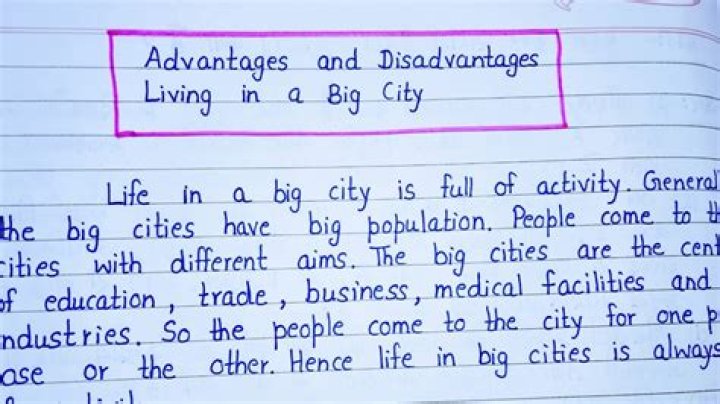 Advantages and Disadvantages
Living in a Big City
Life in a big city is full of activity. General
the big cities have big population. People come to th
cities with different aims. The big cities are the cent
of education, trade, business, medical facilities and
ndustries. So the people come to the city for one p
ose or the other. Hence life in big cities is always